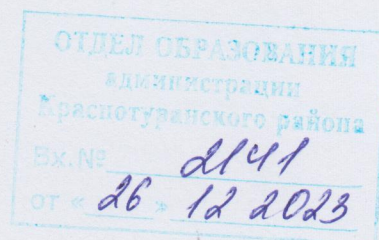 ОТДЕЛ ОБРАЗОВАНИЯ
администрации
Краснотуранского района
Вх.№ 2141
от «26» 12 2023